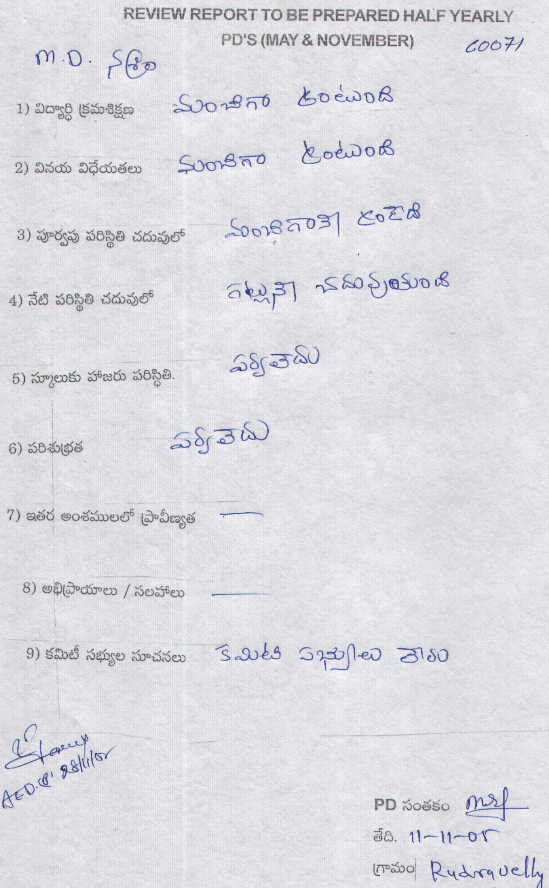 REVIEW REPORT TO BE PREPARED HALF YEARLY
PD'S (MAY & NOVEMBER)
60071
M.D. నశ్రీం
1) విద్యార్ధి క్రమశిక్షణ మంచిగా ఉంటుంది
2) వినయ విధేయతలు మంచిగా ఉంటుంది
3) పూర్వపు పరిస్థితి చదువులో మంచిగానే ఉండెడి
4) నేటి పరిస్థితి చదువులో చదువుతుంది
5) స్కూలుకు హాజరు పరిస్థితి. పర్వలేదు
6) పరిశుభ్రత పర్వలేదు
7) ఇతర అంశములలో ప్రావీణ్యత —
8) అభిప్రాయాలు / సలహాలు —
9) కమిటీ సభ్యుల సూచనలు కమిటి సభ్యులు
28/11/05
PD సంతకం
తేది. 11-11-05
గ్రామం Rudravelly